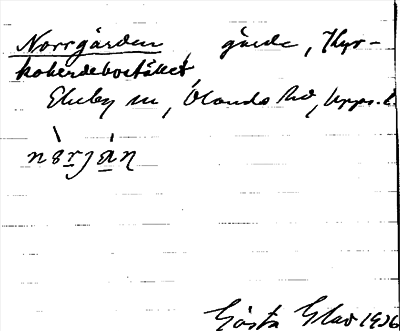 Norrgården, gärde, Kyr-
koherdebostället,
Ekeby sn, Ölands hd, Upps. l.
Gösta Elav 1936